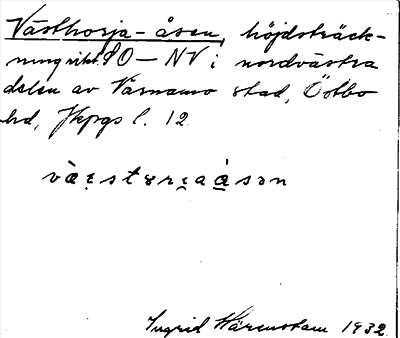 Västhorja-åsen, höjdsträck-
ning i rikt. SO—NV i nordvästra
delen av Värnamo stad, Östbo
hd, Jkpgs l. 12
Ingrid Härenstam 1932.